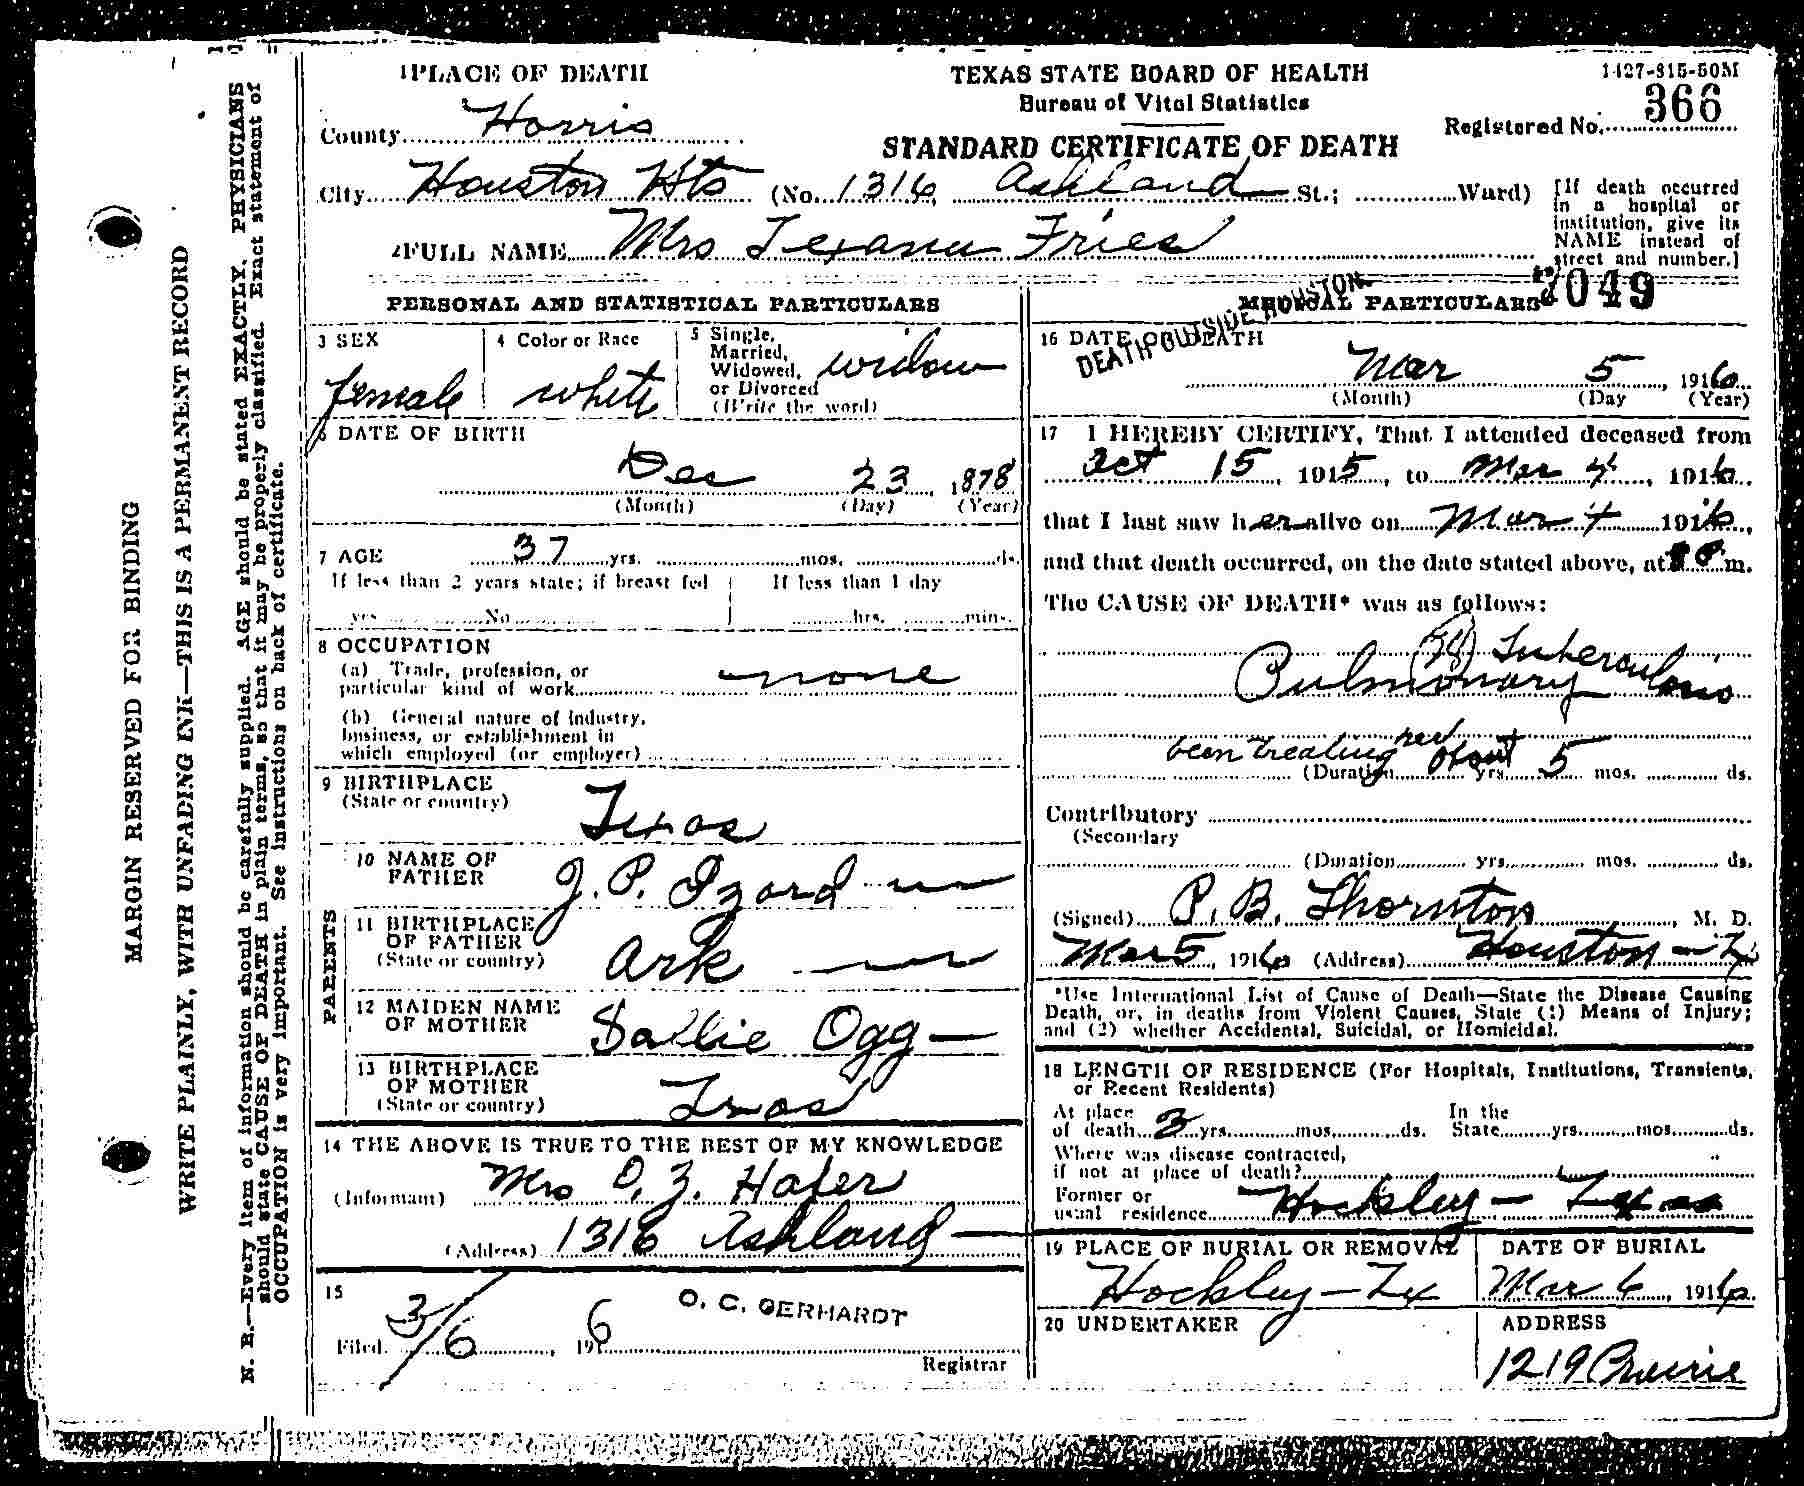 1 PLACE OF DEATH
County Harris
City Houston Hts (No. 1316, Ashland St.; Ward)
2 FULL NAME Mrs Texana Fries
TEXAS STATE BOARD OF HEALTH
Bureau of Vital Statistics
STANDARD CERTIFICATE OF DEATH
1427-815-50M
Registered No. 366
[If death occurred
in a hospital or
institution, give its
NAME instead of
street and number.]
MARGIN RESERVED FOR BINDING
WRITE PLAINLY, WITH UNFADING INK—THIS IS A PERMANENT RECORD
N. B.—Every item of information should be carefully supplied. AGE should be stated EXACTLY. PHYSICIANS
should state CAUSE OF DEATH in plain terms, so that it may be properly classified. Exact statement of
OCCUPATION is very important. See instructions on back of certificate.
PERSONAL AND STATISTICAL PARTICULARS
3 SEX
female
4 Color or Race
white
5 Single,
Married,
Widowed,
or Divorced
(Write the word)
widow
6 DATE OF BIRTH
Dec 23, 1878
(Month) (Day) (Year)
7 AGE 37 yrs. mos. ds.
If less than 2 years state; if breast fed
yrs No
If less than 1 day
hrs. min.
8 OCCUPATION
(a) Trade, profession, or
particular kind of work none
(b) General nature of industry,
business, or establishment in
which employed (or employer)
9 BIRTHPLACE
(State or country) Texas
PARENTS
10 NAME OF
FATHER J. P. Izard
11 BIRTHPLACE
OF FATHER
(State or country) Ark
12 MAIDEN NAME
OF MOTHER Sallie Ogg
13 BIRTHPLACE
OF MOTHER
(State or country) Texas
14 THE ABOVE IS TRUE TO THE BEST OF MY KNOWLEDGE
(Informant) Mrs O. Z. Hafer
(Address) 1316 Ashland
15
Filed 3/6, 1916 O. C. GERHARDT
Registrar
MEDICAL PARTICULARS
049
DEATH OUTSIDE HOUSTON.
16 DATE OF DEATH
Mar 5, 1916
(Month) (Day (Year)
17 I HEREBY CERTIFY, That I attended deceased from
Oct 15, 1915, to Mar 4, 1916,
that I last saw her alive on Mar 4 1916,
and that death occurred, on the date stated above, at P m.
The CAUSE OF DEATH* was as follows:
Pulmonary Tuberculosis
been treating her about
(Duration yrs. 5 mos. ds.
Contributory
(Secondary
(Duration yrs. mos. ds.
(Signed) P. B. Thornton, M. D.
Mar 5, 1916 (Address) Houston - Tx
*Use International List of Cause of Death—State the Disease Causing
Death, or, in deaths from Violent Causes, State (1) Means of Injury;
and (2) whether Accidental, Suicidal, or Homicidal.
18 LENGTH OF RESIDENCE (For Hospitals, Institutions, Transients,
or Recent Residents)
At place
of death 3 yrs. mos. ds.
In the
State yrs. mos. ds.
Where was disease contracted,
if not at place of death?
Former or
usual residence Hockley - Texas
19 PLACE OF BURIAL OR REMOVAL
Hockley - Tx
DATE OF BURIAL
Mar 6, 1916.
20 UNDERTAKER
ADDRESS
1219 Prairie